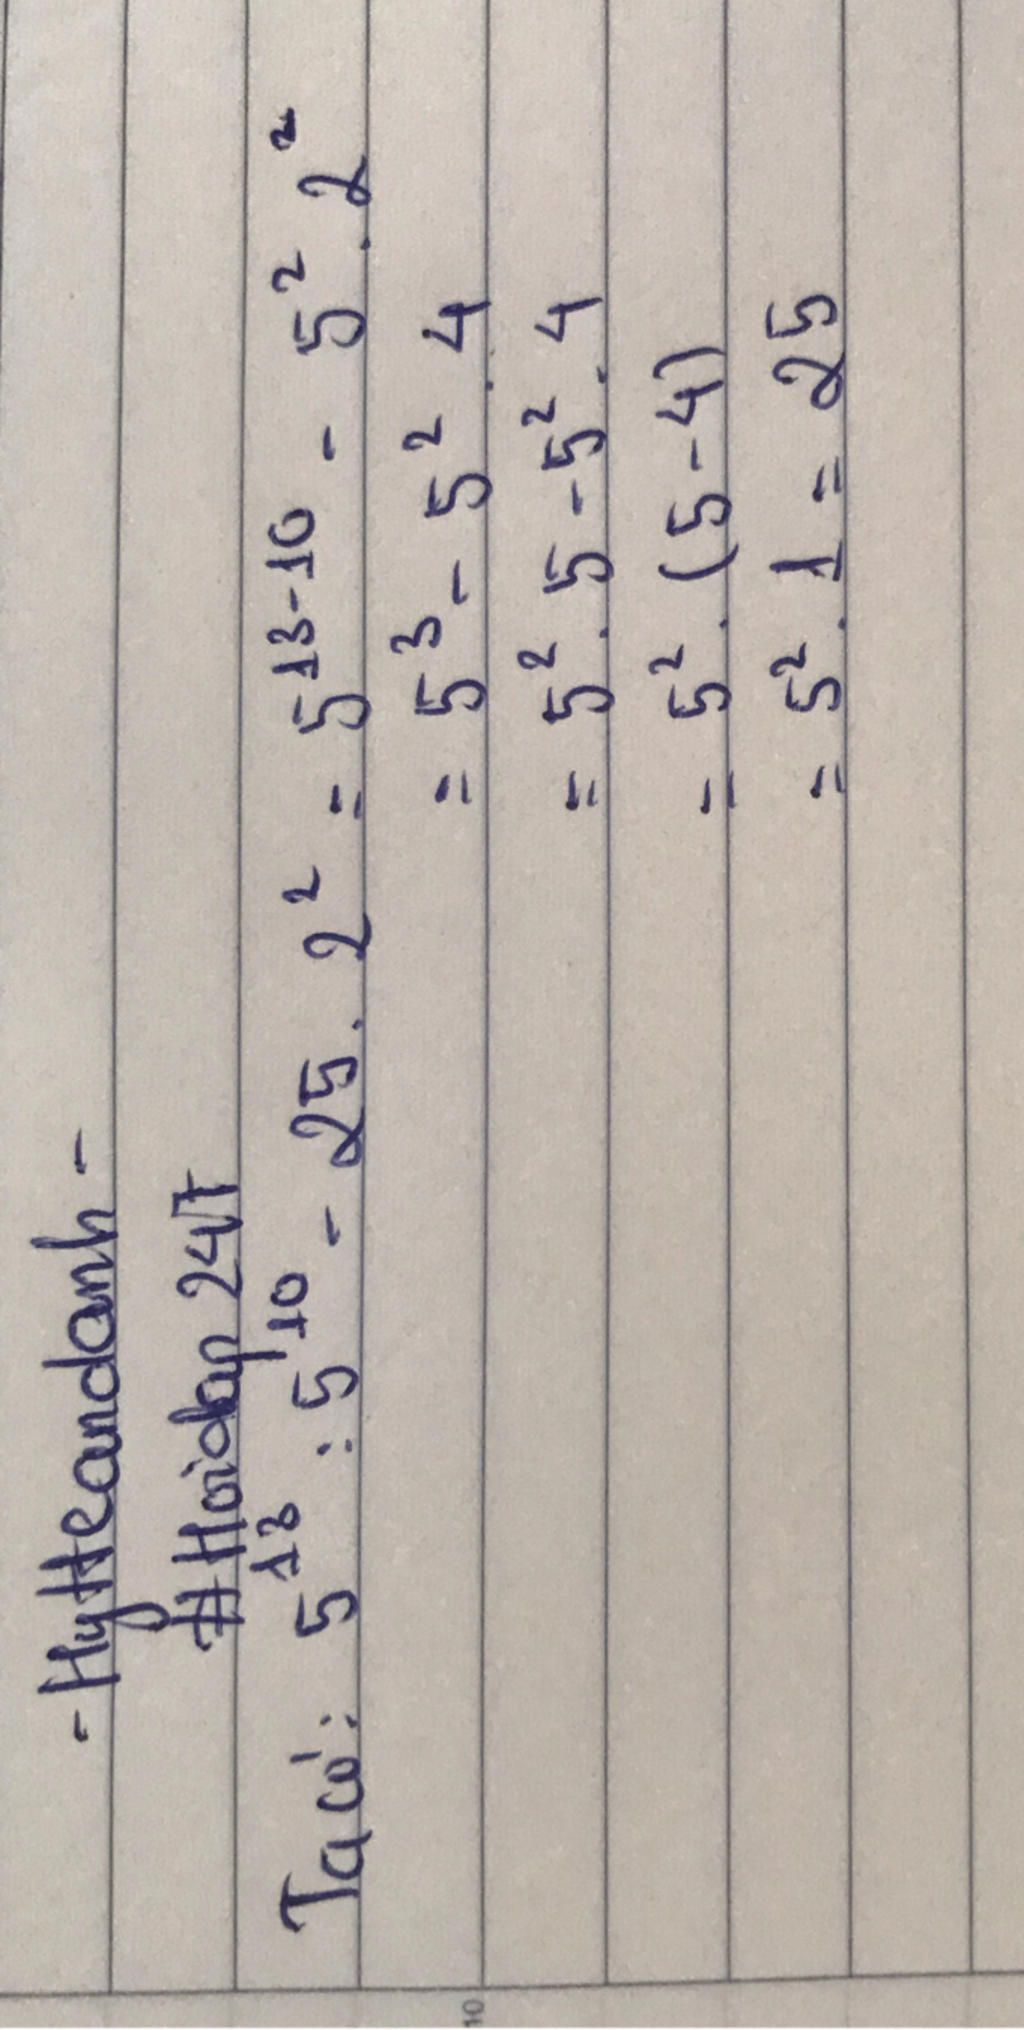 - Hytteandanh -
# Hoidap 247
Ta có: 5¹³ : 5¹⁰ - 25 . 2² = 5¹³⁻¹⁰ - 5² . 2²
= 5³ - 5² . 4
= 5² . 5 - 5² . 4
= 5² . (5 - 4)
= 5² . 1 = 25
10